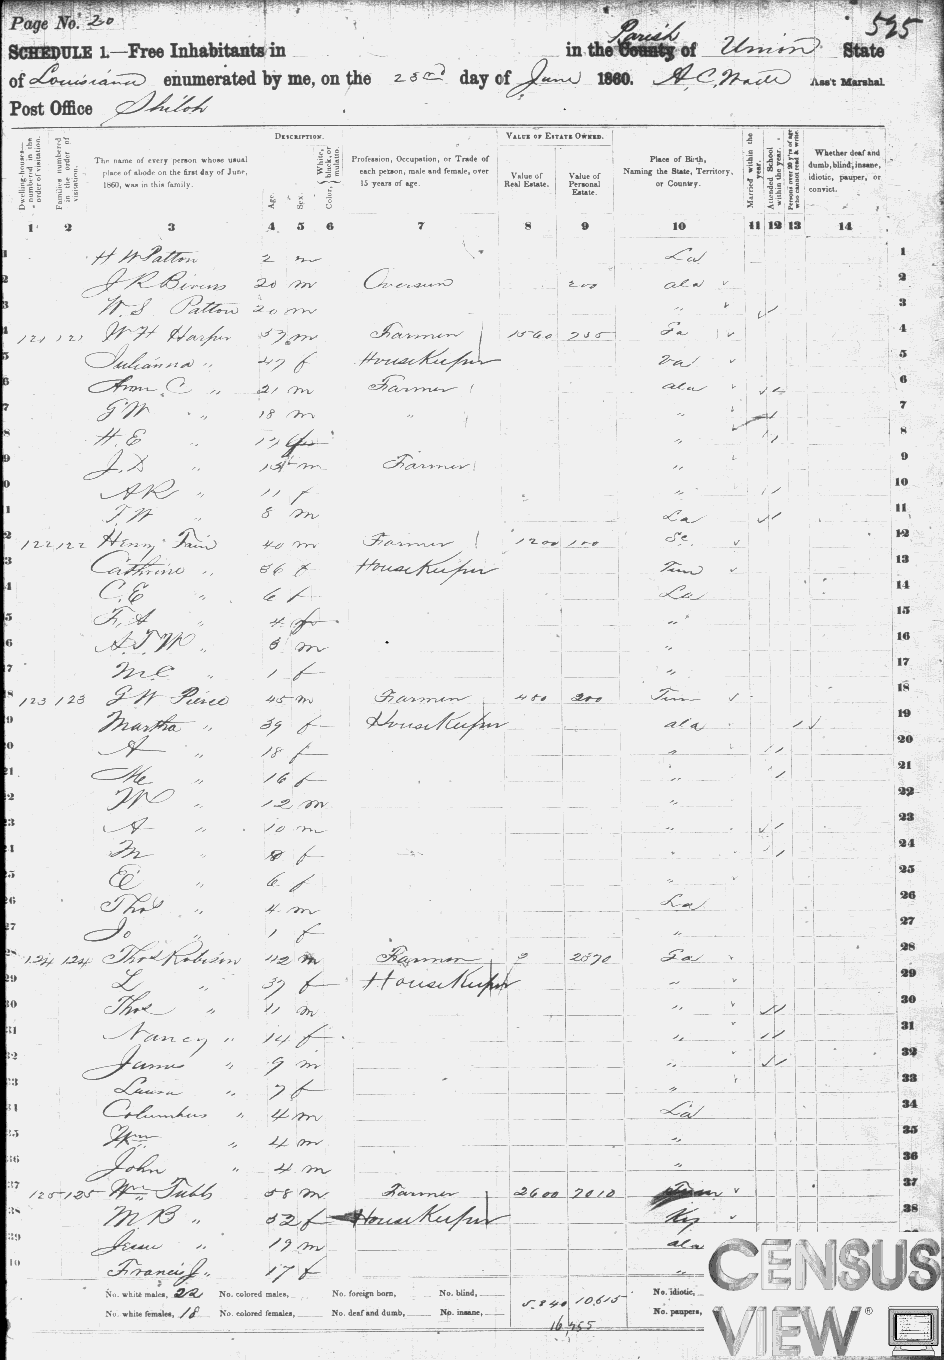 Page No. 20
595
SCHEDULE 1.—Free Inhabitants in in the County Parish of Union State
of Louisiana enumerated by me, on the 23rd day of June 1860. A. C. Wade Ass't Marshal
Post Office Shiloh
Dwelling-houses—numbered in the order of visitation.
Families numbered in the order of visitation.
The name of every person whose usual place of abode on the first day of June, 1860, was in this family.
DESCRIPTION.
Age. Sex. Color, White, black, or mulatto.
Profession, Occupation, or Trade of each person, male and female, over 15 years of age.
VALUE OF ESTATE OWNED.
Value of Real Estate. Value of Personal Estate.
Place of Birth, Naming the State, Territory, or Country.
Married within the year.
Attended School within the year.
Persons over 20 y'rs of age who cannot read & write.
Whether deaf and dumb, blind, insane, idiotic, pauper, or convict.
1 2 3 4 5 6 7 8 9 10 11 12 13 14
1 H W Patton 2 m La 1
2 J R Bivens 20 m Overseer 200 ala 2
3 W. S. Patton 20 m " 3
4 121 121 W H Harper 57 m Farmer 1560 735 Ga 4
5 Julianna " 47 f HouseKeeper Va 5
6 C " 21 m Farmer ala 6
7 G W " 18 m " " 7
8 H. E " 17 " 8
9 J. D " 15 m Farmer " 9
10 A R " 11 f " 10
11 T. W " 8 m La 11
12 122 122 Henry Fair 40 m Farmer 1200 100 Sc 12
13 Cathrine " 36 f HouseKeeper Tenn 13
14 C. E " 6 f La 14
15 F. A " 4 f " 15
16 A. T. W " 3 m " 16
17 M. C " 1 f " 17
18 123 123 G W Pierce 45 m Farmer 480 200 Tenn 18
19 Martha " 39 f HouseKeeper ala 1 19
20 A " 18 f " 20
21 Me " 16 f " 21
22 W " 12 m " 22
23 A " 10 m " 23
24 M " 8 f " 24
25 E " 6 f " 25
26 Thos " 4 m La 26
27 Jo " 1 f " 27
28 124 124 Thos Robison 42 m Farmer 2 2870 Ga 28
29 L " 37 f HouseKeeper " 29
30 Thos " 11 m " 30
31 Nancy " 14 f " 31
32 James " 9 m " 32
33 Laura " 7 f " 33
34 Columbus " 4 m La 34
35 Wm " 4 m " 35
36 John " 4 m " 36
37 125 125 Wm Tubbs 58 m Farmer 2600 7010 37
38 M B " 52 f HouseKeeper Ky 38
39 Jesse " 19 m ala
40 Francis J. " 17 f "
No. white males, 22 No. colored males, No. foreign born, No. blind, 5.840 10,615 No. idiotic,
No. white females, 18 No. colored females, No. deaf and dumb, No. insane, No. paupers,
16,455
CENSUS VIEW ®